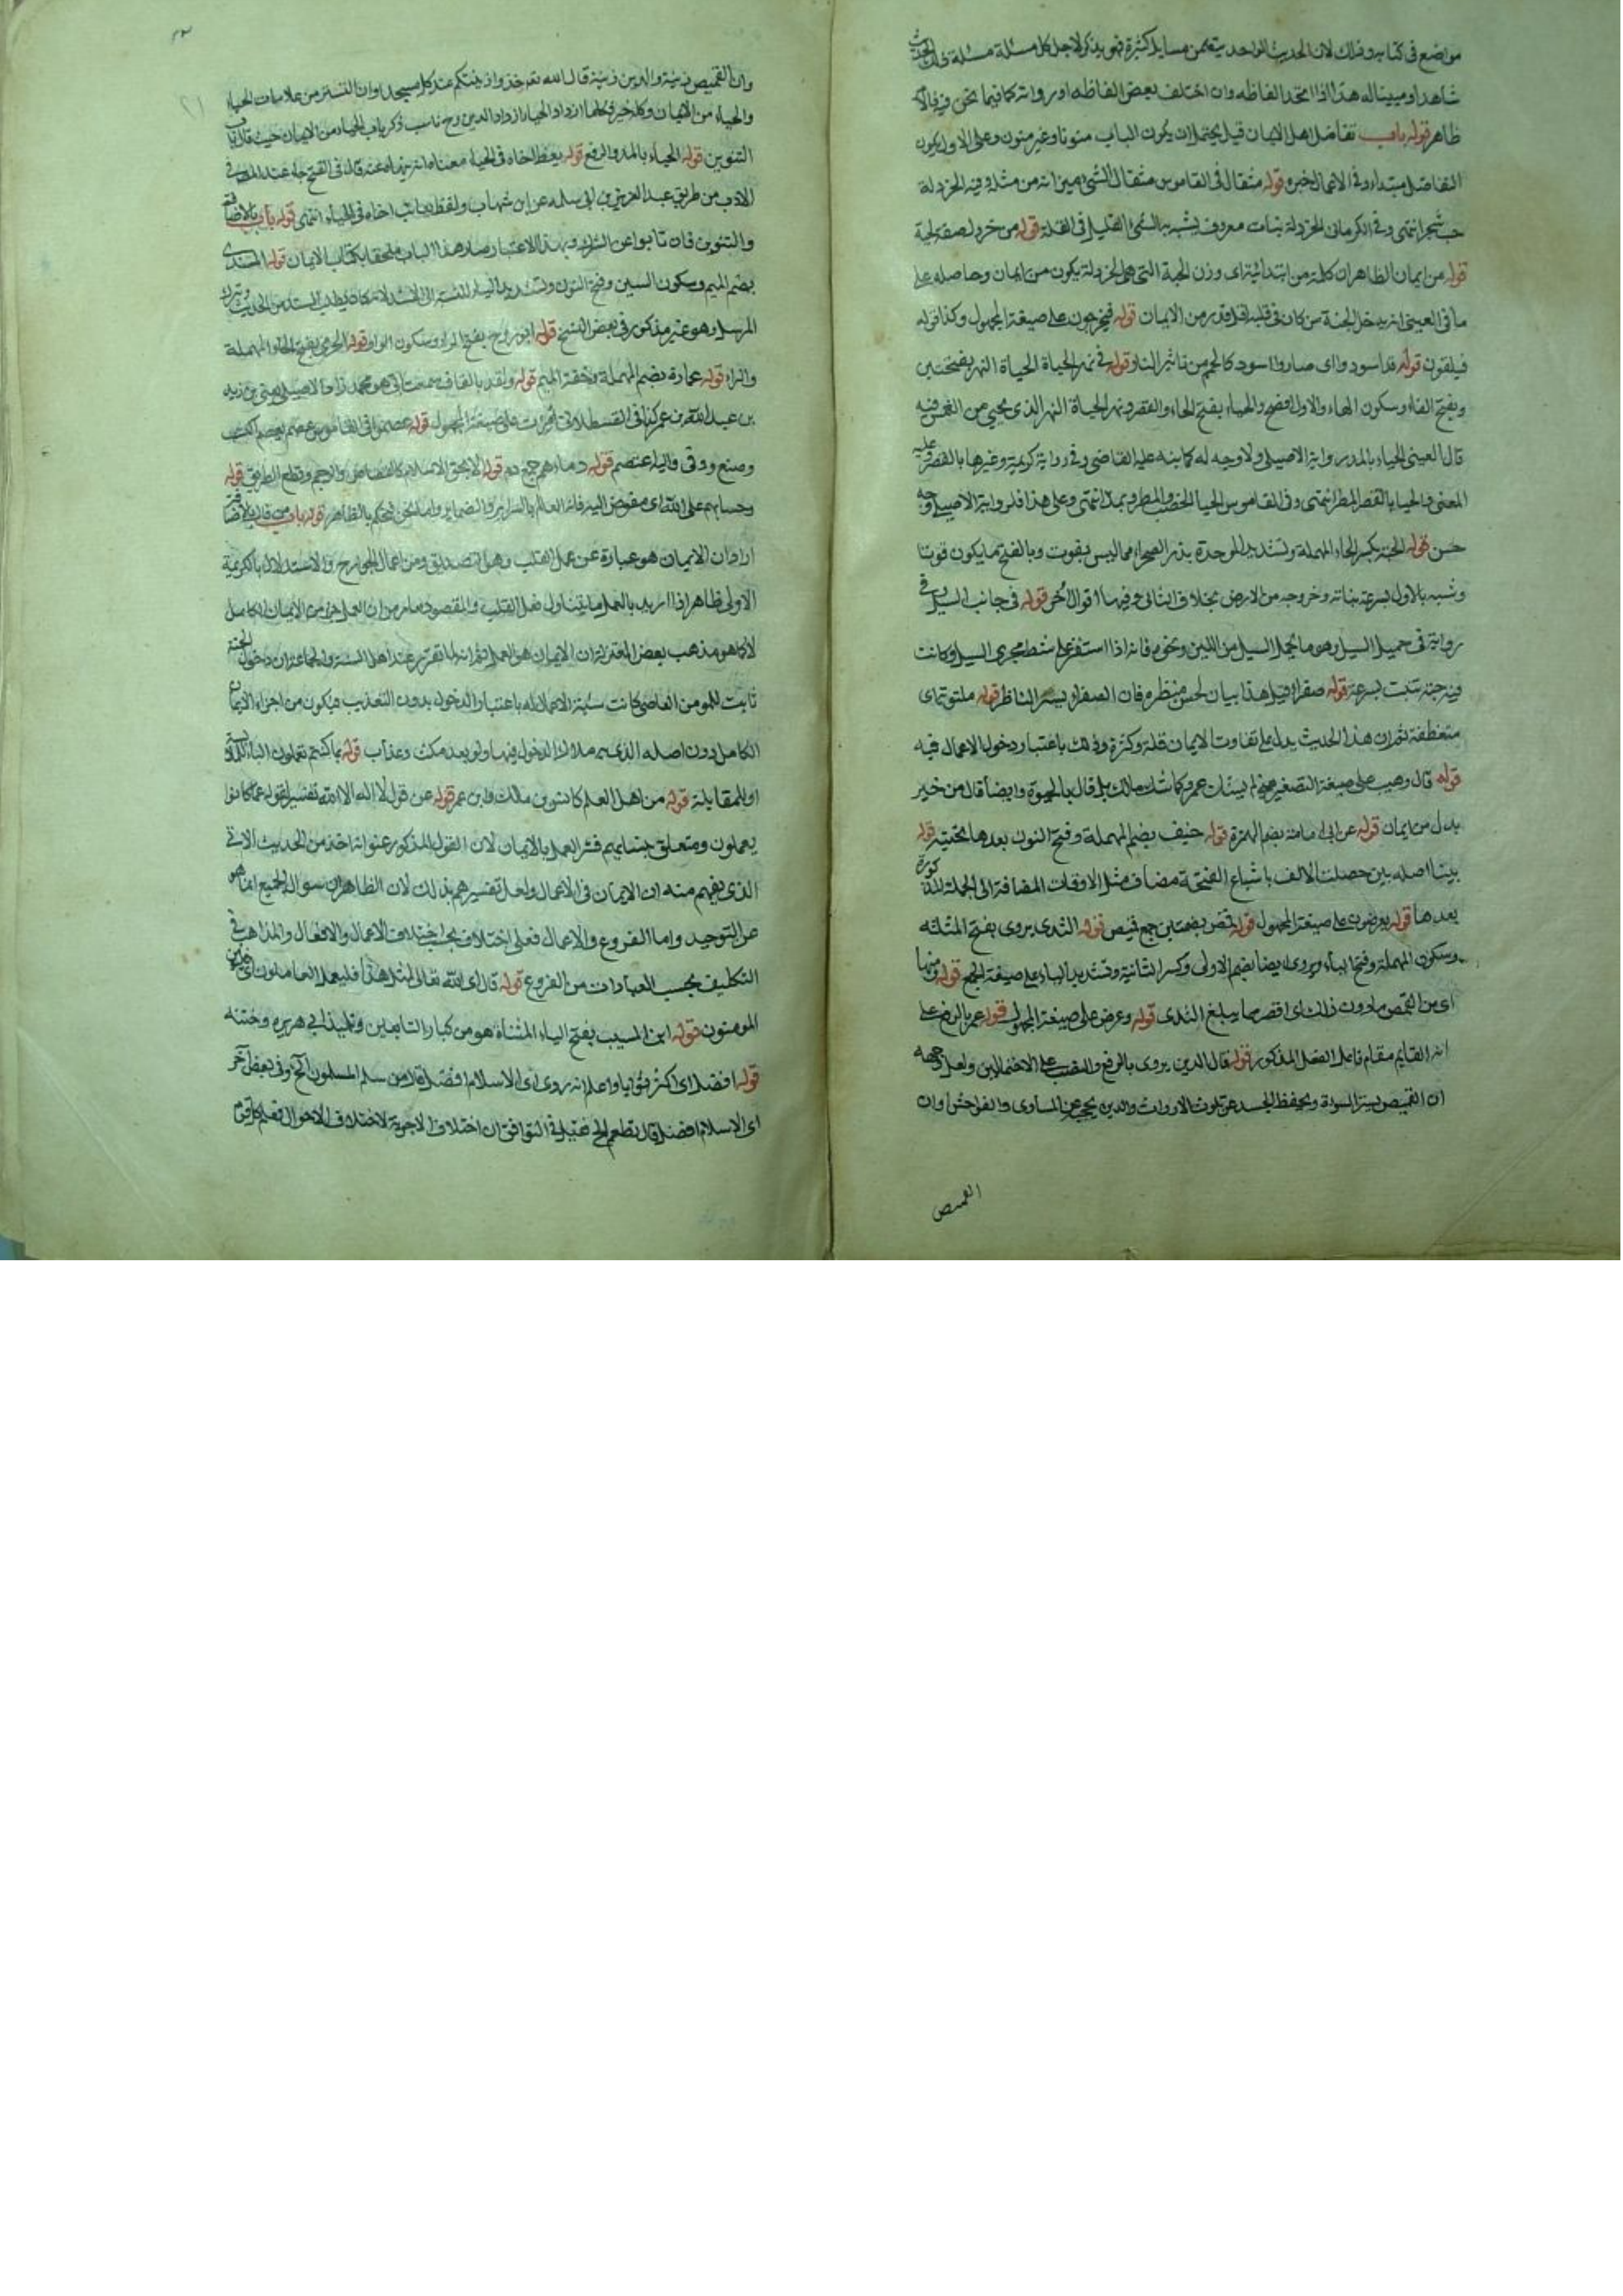 مواضع في كتابه وذلك لان الحديث الواحد يتضمن مسايل كثيرة فهو يذكر لاجل كل مسئلة مسئلة ذلك الحديث
شاهدا ومبينا له هذا اذا اتحد الفاظه وان اختلف بعض الفاظه او رواته كما فيما نحن فيه فالامر
ظاهر قوله باب تفاضل اهل الايمان قيل يحتمل ان يكون الباب منونا وغير منون وعلى الاول يكون
التفاضل مبتدا وفي الاعمال خبره قوله مثقال في القاموس مثقال الشي ميزانه من مثله وفيه الخردلة
حب شجر انتهى وفي الكرماني الخردلة نبات معروف يشبه به الشئ القليل في القلة قوله من خردل صفة لحبة
قوله من ايمان الظاهر ان كلمة من ابتدائية اى وزن الحبة التي هي الخردلة يكون من ايمان وحاصله على
ما في العيني انه يدخل الجنة من كان في قلبه اقل قدر من الايمان قوله فيخرجون على صيغة المجهول وكذا قوله
فيلقون قوله قد اسودوا اى صاروا سود كالحمم من تاثير النار قوله في نهر الحياة الحياة النهر بفتحتين
وبفتح الفاء وسكون الهاء والاول افصح والحياء بفتح الحاء والقصر ونهر الحياة النهر الذى يحيى من انغمس فيه
قال العيني الحياء بالمد رواية الاصيلي ولا وجه له كما نبه عليه القاضي وفي رواية كريمة وغيرها بالقصر وعليه
المعنى والحيا بالقصر المطر انتهى وفي القاموس الحيا الخصب والمطر ويمد انتهى وعلى هذا فلرواية الاصيلي وجه
حسن قوله الحبة بكسر الحاء المهملة وتشديد الموحدة بذر الصحراء مما ليس بقوت وبالفتح ما يكون قوتا
وشبه بالاول لسرعة نباته وخروجه من الارض بخلاف الثاني وفيها اقوال اخر قوله في جانب السيل وفي
رواية في حميل السيل وهو ما يحمله السيل من الطين ونحوه فانه اذا استقر على شط مجرى السيل وكانت
فيه حبة تنبت بسرعة قوله صفراء قيل هذا بيان لحسن منظره فان الصفراء يسر الناظر قوله ملتوية اى
منعطفة ثم ان هذا الحديث يدل على تفاوت الايمان قلة وكثرة وذلك باعتبار دخول الاعمال فيه
قوله قال وهيب على صيغة التصغير يعني لم يشك عمرو كما شك مالك بل قال بالحيوة وايضا قال من خير
بدل من ايمان قوله عن ابي امامة بضم الهمزة قوله حنيف بضم المهملة وفتح النون بعدها تحتية قوله
بينا اصله بين حصلت الالف باشباع الفتحة مضاف مثل الاوقات المضافة الى الجملة المذكورة
بعدها قوله يعرضون على صيغة المجهول قوله قمص بضمتين جمع قميص قوله الثدى يروى بفتح المثلثة
وسكون المهملة وفتح الياء ويروى ايضا بضم الاولى وكسر الثانية وتشديد الياء على صيغة الجمع قوله ومنها
اى من القمص ما دون ذلك اى اقصر مما يبلغ الثدى قوله وعرض على صيغة المجهول قوله عمر بالرفع على
انه القايم مقام فاعل الفعل المذكور قوله قال الدين يروى بالرفع والنصب على الاحتمالين ولعل وجهه
ان القميص يستر السوءة ويحفظ الجسد عن تلوث الارواث والدين يحجب عن المساوى والفواحش وان
القميص
وان القميص زينة والدين زينة قال الله تعالى خذوا زينتكم عند كل مسجد وان التستر من علامات الحياء
والحياء من الايمان وكله خير فكلما ازداد الحياء ازداد الدين وح ناسب ذكر باب الحياء من الايمان حيث قال باب
التنوين قوله الحياء بالمد والرفع قوله يعظ اخاه في الحياء معناه انه ينهاه عنه قال في الفتح جاء عند المصنف في
الادب من طريق عبد العزيز بن ابي سلمه عن ابن شهاب ولفظه يعاتب اخاه في الحياء انتهى قوله باب بالاضافة
والتنوين فان تابوا عن الشرك وبهذا الاعتبار صار هذا الباب ملحقا بكتاب الايمان قوله المسندى
بضم الميم وسكون السين وفتح النون وتشديد الياء للنسبة الى المسند لانه كان يطلب المسند من الحديث ويترك
المرسل وهو غير مذكور في بعض النسخ قوله ابو روح بفتح الراء وسكون الواو قوله الحرمي بفتح الحاء المهملة
والراء قوله عمارة بضم المهملة وخفة الميم قوله واقد بالقاف سمعت ابي هو محمد زاد الاصيلي يعني بن زيد
بن عبد الله بن عمر كذا في القسطلاني قوله امرت على صيغة المجهول قوله عصموا في القاموس عصم يعصم اكتسب
وصنع ووقى واليه اعتصم قوله دماءهم جمع دم قوله الا بحق الاسلام كالقصاص والرجم وقطع الطريق قوله
وحسابهم على الله اى مفوض اليه فانه العالم بالسراير والضماير واما نحن نحكم بالظاهر قوله باب من قال بالاضافة
اراد ان الايمان هو عبارة عن عمل القلب وهو التصديق ومن اعمال الجوارح والاستدلال بالكريمة
الاولى ظاهر اذا اريد بالعمل ما يتناول فعل القلب والمقصود ما مر من ان العمل جزء من الايمان الكامل
لا كما هو مذهب بعض المعتزلة ان الايمان هو العمل ثم انه لما تقرر عند اهل السنة والجماعة ان دخول الجنة
ثابت للمومن العاصي كانت سببية الاعمال له باعتبار الدخول بدون التعذيب فيكون من اجزاء الايمان
الكامل دون اصله الذى هو ملاك الدخول فيها ولو بعد مكث وعذاب قوله بما كنتم تعملون الباء للسببية
او للمقابلة قوله من اهل العلم كانس بن مالك وابن عمر قوله عن قول لا اله الا الله تفسير لقوله عما كانوا
يعملون ومتعلق بتسايهم فسر العمل بالايمان لان القول المذكور عنوانه اخذ من الحديث الاتي
الذى يفهم منه ان الايمان في الاعمال ولعل تفسيرهم بذلك لان الظاهر ان سوال الجميع انما هو
عن التوحيد واما الفروع والاعمال فعلى اختلاف بحسب اختلاف الاعمال والافعال والمذاهب في
التكليف بحسب العبادات من الفروع قوله قال اى الله تعالى لمثل هذا فليعمل العاملون اى فليؤمن
المومنون قوله ابن المسيب بفتح الياء المثناة هو من كبار التابعين وتلميذ ابي هريره وختنه
قوله افضل اى اكثر ثوابا واعلم انه روى اى الاسلام افضل قال من سلم المسلمون الخ وفي بعض آخر
اى الاسلام افضل قال تطعم الخ فقيل في التوافق ان اختلاف الاجوبة لاختلاف الاحوال فعلم كل قوم
٢١